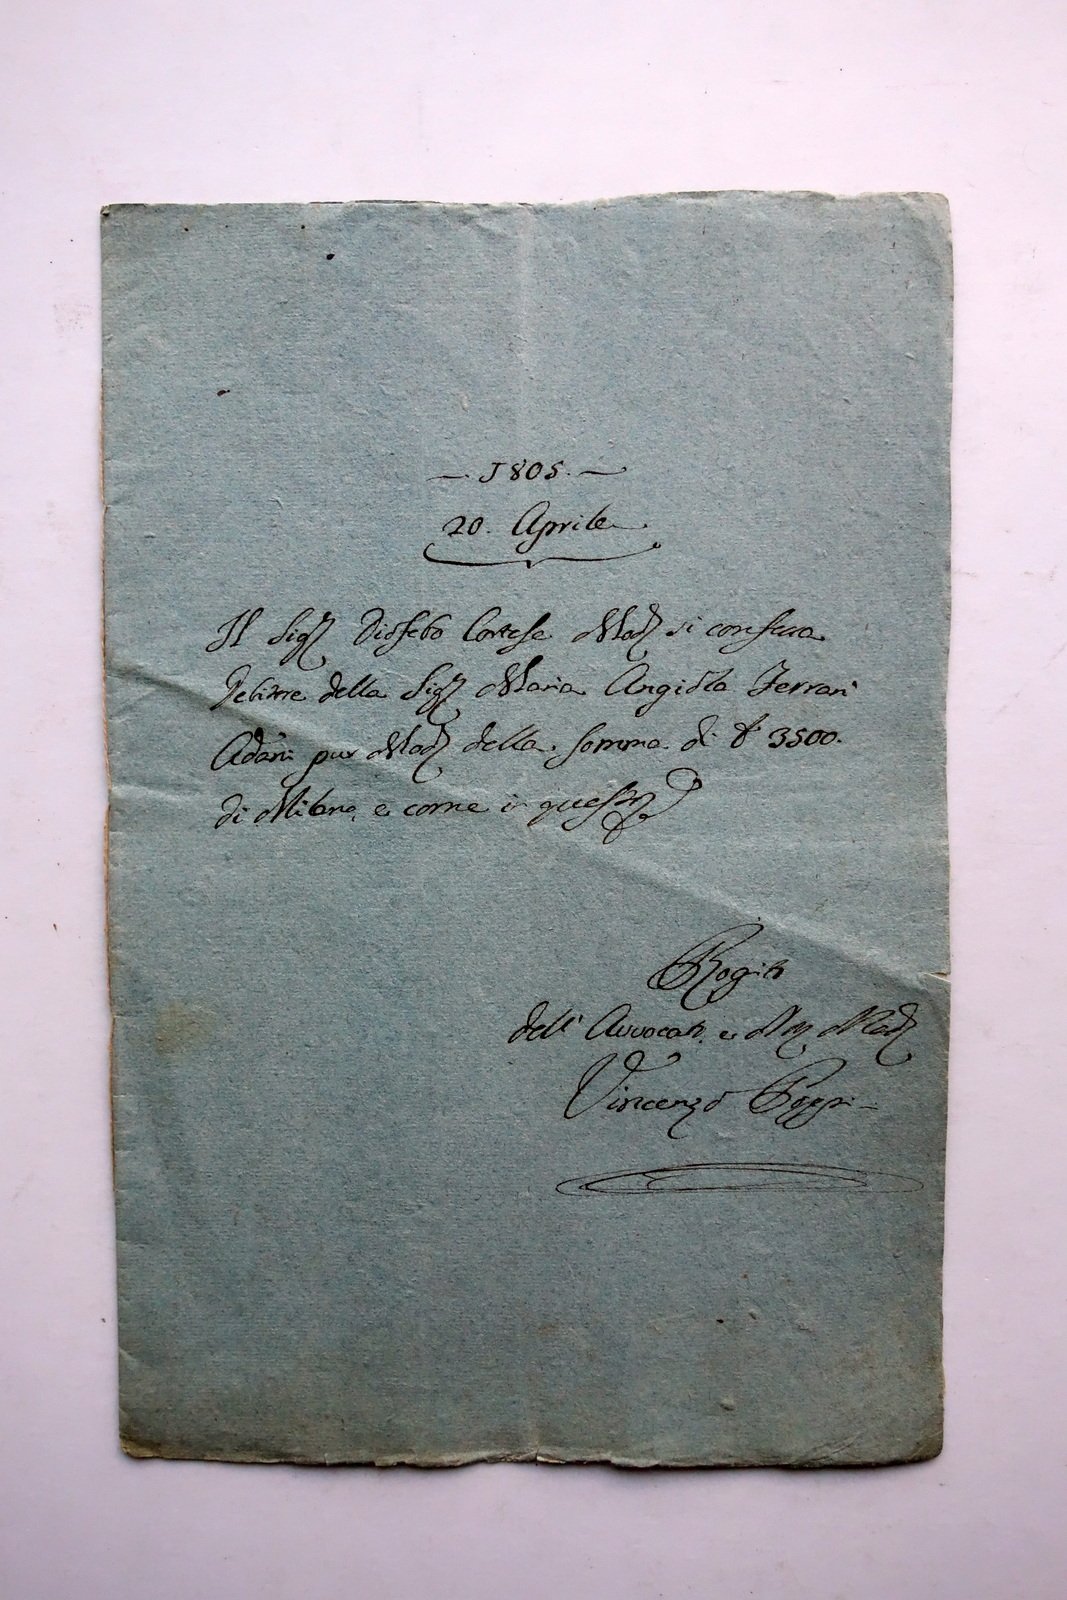 — 1805. —
20. Aprile
Il Sigr Diofebo Cortese Mode si confessa
Debitore della Sigra Maria Angiola Ferrari
Adani pur Mode della somma di 3500.
di Milano, e come in questo
Rogito
dell' Avvocato e Mode
Vincenzo Poppi